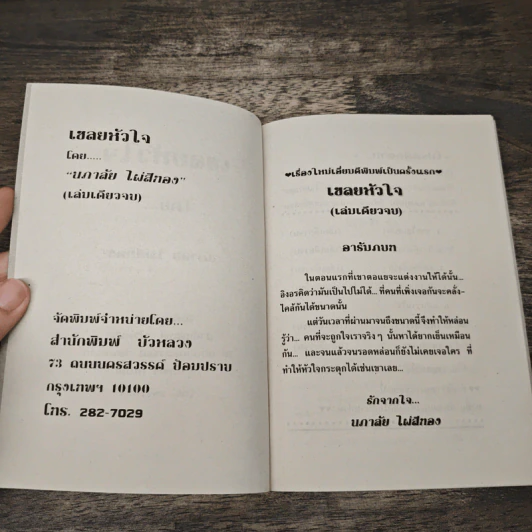 เชลยหัวใจ
โดย.....
"นภาลัย ไผ่สีทอง"
(เล่มเดียวจบ)
จัดพิมพ์จำหน่ายโดย...
สำนักพิมพ์ บัวหลวง
73 ถนนนครสวรรค์ ป้อมปราบ
กรุงเทพฯ 10100
โทร. 282-7029
♥เรื่องใหม่เอี่ยมตีพิมพ์เป็นครั้งแรก♥
เชลยหัวใจ
(เล่มเดียวจบ)
อารัมภบท
ในตอนแรกที่เขาตอแยจะแต่งงานให้ได้นั้น...
อิงอรคิดว่ามันเป็นไปไม่ได้... ที่คนที่เพิ่งเจอกันจะคลั่ง-
ไคล้กันได้ขนาดนั้น
แต่วันเวลาที่ผ่านมาจนถึงขนาดนี้จึงทำให้หล่อน
รู้ว่า... คนที่จะถูกใจเราจริงๆ นั้นหาได้ยากเย็นเหมือน
กัน... และจนแล้วจนรอดหล่อนก็ยังไม่เคยเจอใคร ที่
ทำให้หัวใจกระตุกได้เช่นเขาเลย...
รักจากใจ...
นภาลัย ไผ่สีทอง